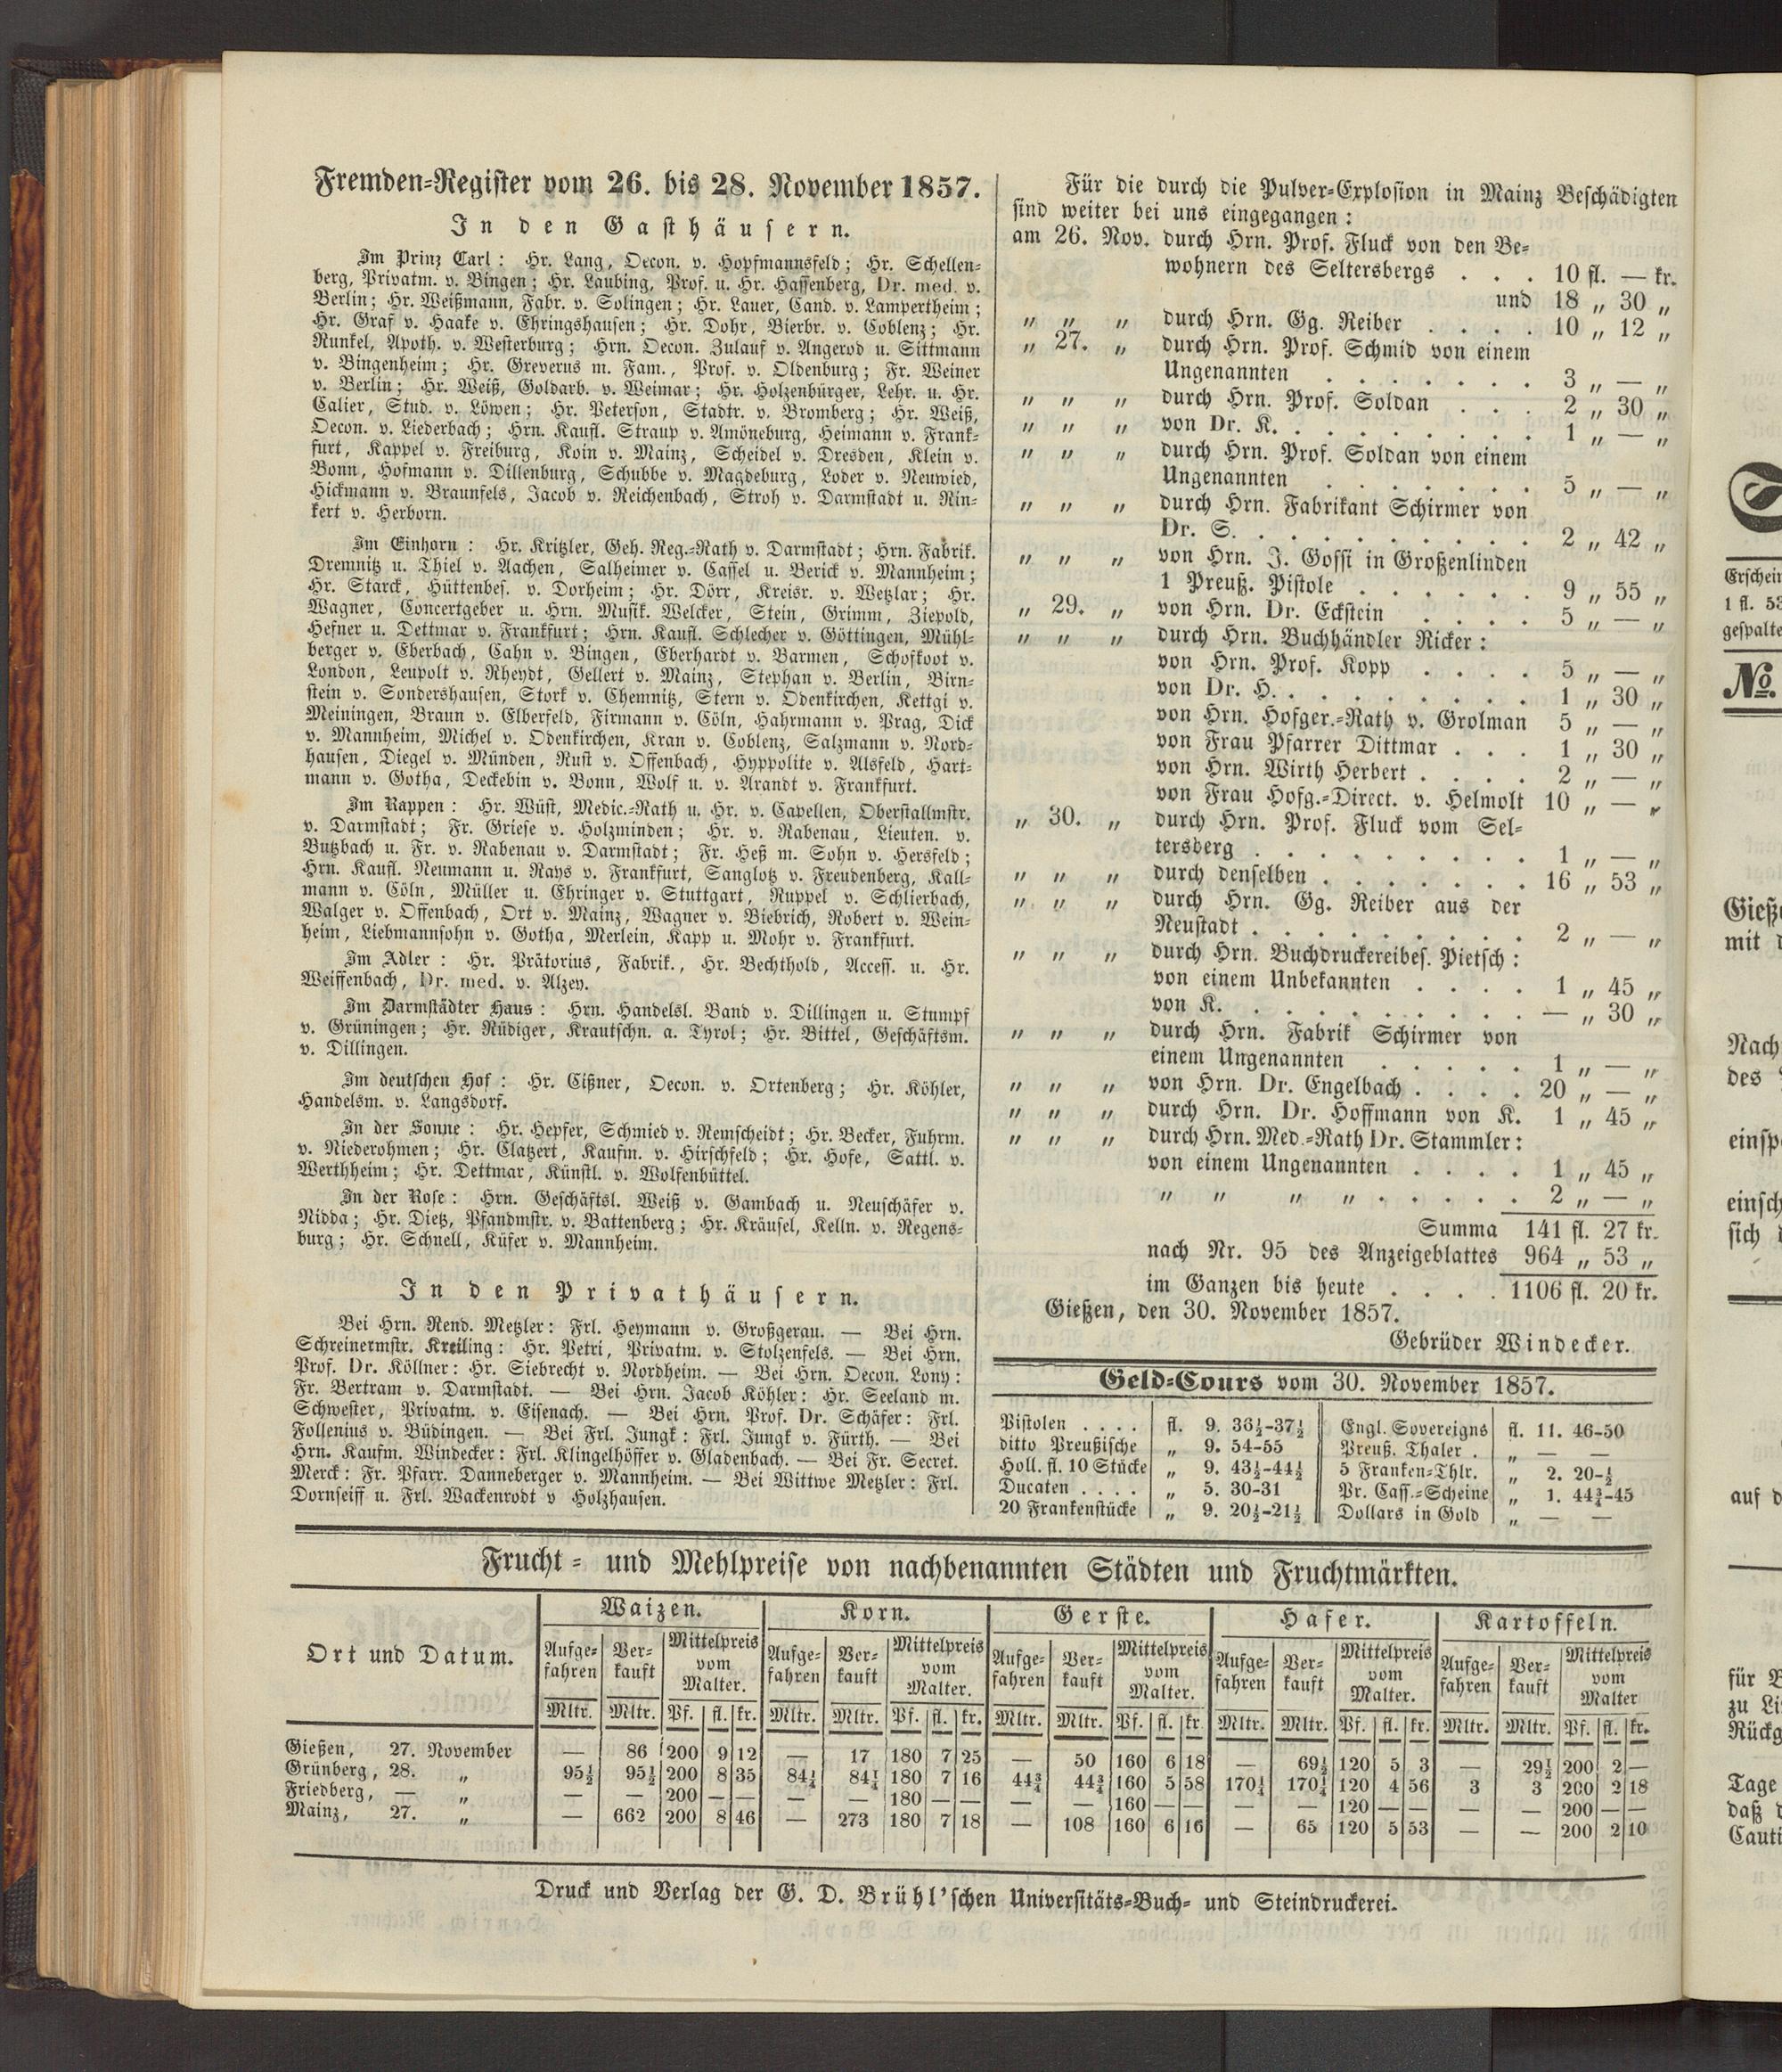 Fremden-Register vom 26. bis 28. November 1857.
In den Gasthäusern.
Im Prinz Carl: Hr. Lang, Oecon. v. Hopfmannsfeld; Hr. Schellen-
berg, Privatm. v. Bingen; Hr. Laubing, Prof. u. Hr. Hassenberg, Dr. med. v.
Berlin; Hr. Weißmann, Fabr. v. Solingen; Hr. Lauer, Cand. v. Lampertheim;
Hr. Graf v. Haake v. Ehringshausen; Hr. Dohr, Bierbr. v. Coblenz; Hr.
Runkel, Apoth. v. Westerburg; Hrn. Oecon. Zulauf v. Angerod u. Sittmann
v. Bingenheim; Hr. Greverus m. Fam., Prof. v. Oldenburg; Fr. Weiner
v. Berlin; Hr. Weiß, Goldarb. v. Weimar; Hr. Holzenbürger, Lehr. u. Hr.
Calier, Stud. v. Löwen; Hr. Peterson, Stadtr. v. Bromberg; Hr. Weiß,
Oecon. v. Liederbach; Hrn. Kaufl. Straup v. Amöneburg, Heimann v. Frank-
furt, Kappel v. Freiburg, Koin v. Mainz, Scheidel v. Dresden, Klein v.
Bonn, Hofmann v. Dillenburg, Schubbe v. Magdeburg, Loder v. Neuwied,
Hickmann v. Braunfels, Jacob v. Reichenbach, Stroh v. Darmstadt u. Rin-
kert v. Herborn.
Im Einhorn: Hr. Kritzler, Geh. Reg.-Rath v. Darmstadt; Hrn. Fabrik.
Dremnitz u. Thiel v. Aachen, Salheimer v. Cassel u. Berick v. Mannheim;
Hr. Starck, Hüttenbes. v. Dorheim; Hr. Dörr, Kreisr. v. Wetzlar; Hr.
Wagner, Concertgeber u. Hrn. Musik. Welcker, Stein, Grimm, Ziepold,
Hefner u. Dettmar v. Frankfurt; Hrn. Kaufl. Schlecher v. Göttingen, Mühl-
berger v. Eberbach, Cahn v. Bingen, Eberhardt v. Barmen, Schofkoot v.
London, Leupolt v. Rheydt, Gellert v. Mainz, Stephan v. Berlin, Birn-
stein v. Sondershausen, Stork v. Chemnitz, Stern v. Odenkirchen, Kettgi v.
Meiningen, Braun v. Elberfeld, Firmann v. Cöln, Hahrmann v. Prag, Dick
v. Mannheim, Michel v. Odenkirchen, Kran v. Coblenz, Salzmann v. Nord-
hausen, Diegel v. Münden, Rust v. Offenbach, Hyppolite v. Alsfeld, Hart-
mann v. Gotha, Deckebin v. Bonn, Wolf u. v. Arandt v. Frankfurt.
Im Rappen: Hr. Wüst, Medic.-Rath u. Hr. v. Capellen, Oberstallmstr.
v. Darmstadt; Fr. Griese v. Holzminden; Hr. v. Rabenau, Lieuten. v.
Butzbach u. Fr. v. Rabenau v. Darmstadt; Fr. Heß m. Sohn v. Hersfeld;
Hrn. Kaufl. Neumann u. Rays v. Frankfurt, Sanglotz v. Freudenberg, Kall-
mann v. Cöln, Müller u. Ehringer v. Stuttgart, Ruppel v. Schlierbach,
Walger v. Offenbach, Ort v. Mainz, Wagner v. Biebrich, Robert v. Wein-
heim, Liebmannsohn v. Gotha, Merlein, Kapp u. Mohr v. Frankfurt.
Im Adler: Hr. Prätorius, Fabrik., Hr. Bechthold, Access. u. Hr.
Weiffenbach, Dr. med. v. Alzey.
Im Darmstädter Haus: Hrn. Handelsl. Band v. Dillingen u. Stumpf
v. Grüningen; Hr. Rüdiger, Krautschn. a. Tyrol; Hr. Bittel, Geschäftsm.
v. Dillingen.
Im deutschen Hof: Hr. Cißner, Oecon. v. Ortenberg; Hr. Köhler,
Handelsm. v. Langsdorf.
In der Sonne: Hr. Hepfer, Schmied v. Remscheidt; Hr. Becker, Fuhrm.
v. Niederohmen; Hr. Clatzert, Kaufm. v. Hirschfeld; Hr. Hofe, Sattl. v.
Werthheim; Hr. Dettmar, Künstl. v. Wolfenbüttel.
In der Rose: Hrn. Geschäftsl. Weiß v. Gambach u. Neuschäfer v.
Nidda; Hr. Dietz, Pfandmstr. v. Battenberg; Hr. Kräusel, Kelln. v. Regens-
burg; Hr. Schnell, Küfer v. Mannheim.
In den Privathäusern.
Bei Hrn. Rend. Metzler: Frl. Heymann v. Großgerau. — Bei Hrn.
Schreinermstr. Kreiling: Hr. Petri, Privatm. v. Stolzenfels. — Bei Hrn.
Prof. Dr. Köllner: Hr. Siebrecht v. Nordheim. — Bei Hrn. Oecon. Lony:
Fr. Bertram v. Darmstadt. — Bei Hrn. Jacob Köhler: Hr. Seeland m.
Schwester, Privatm. v. Eisenach. — Bei Hrn. Prof. Dr. Schäfer: Frl.
Follenius v. Büdingen. — Bei Frl. Jungk: Frl. Jungk v. Fürth. — Bei
Hrn. Kaufm. Windecker: Frl. Klingelhöffer v. Gladenbach. — Bei Fr. Secret.
Merck: Fr. Pfarr. Danneberger v. Mannheim. — Bei Wittwe Metzler: Frl.
Dornseiff u. Frl. Wackenrodt v Holzhausen.
Für die durch die Pulver-Explosion in Mainz Beschädigten
sind weiter bei uns eingegangen:
am 26. Nov. durch Hrn. Prof. Fluck von den Be-
wohnern des Seltersbergs . . . 10 fl. — kr.
und 18 „ 30 „
„ „ „ durch Hrn. Gg. Reiber . . . . 10 „ 12 „
„ 27. „ durch Hrn. Prof. Schmid von einem
Ungenannten . . . . . . . 3 „ — „
„ „ „ durch Hrn. Prof. Soldan . . . 2 „ 30 „
„ „ „ von Dr. K. . . . . . . . . 1 „ — „
„ „ „ durch Hrn. Prof. Soldan von einem
Ungenannten . . . . . . . 5 „ — „
„ „ „ durch Hrn. Fabrikant Schirmer von
Dr. S. . . . . . . . . . 2 „ 42 „
„ „ „ von Hrn. J. Gossi in Großenlinden
1 Preuß. Pistole . . . . . . 9 „ 55 „
„ 29. „ von Hrn. Dr. Eckstein . . . . 5 „ — „
„ „ „ durch Hrn. Buchhändler Ricker:
von Hrn. Prof. Kopp . . . . 5 „ — „
von Dr. H. . . . . . . . . 1 „ 30 „
von Hrn. Hofger.-Rath v. Grolman 5 „ — „
von Frau Pfarrer Dittmar . . . 1 „ 30 „
von Hrn. Wirth Herbert . . . . 2 „ — „
von Frau Hofg.-Direct. v. Helmolt 10 „ — „
„ 30. „ durch Hrn. Prof. Fluck vom Sel-
tersberg . . . . . . . . . 1 „ — „
„ „ „ durch denselben . . . . . . . 16 „ 53 „
„ „ „ durch Hrn. Gg. Reiber aus der
Neustadt . . . . . . . . . 2 „ — „
„ „ „ durch Hrn. Buchdruckereibes. Pietsch:
von einem Unbekannten . . . . 1 „ 45 „
von K. . . . . . . . . . — „ 30 „
„ „ „ durch Hrn. Fabrik Schirmer von
einem Ungenannten . . . . . 1 „ — „
„ „ „ von Hrn. Dr. Engelbach . . . . 20 „ — „
„ „ „ durch Hrn. Dr. Hoffmann von K. 1 „ 45 „
„ „ „ durch Hrn. Med.-Rath Dr. Stammler:
von einem Ungenannten . . . . 1 „ 45 „
„ „ „ „ . . . . . 2 „ — „
Summa 141 fl. 27 kr.
nach Nr. 95 des Anzeigeblattes 964 „ 53 „
im Ganzen bis heute . . . . 1106 fl. 20 kr.
Gießen, den 30. November 1857.
Gebrüder Windecker.
Geld-Cours vom 30. November 1857.
Pistolen . . . . fl. 9. 36½-37½ Engl. Sovereigns fl. 11. 46-50
ditto Preußische „ 9. 54-55 Preuß. Thaler . „ — —
Holl. fl. 10 Stücke „ 9. 43½-44½ 5 Franken-Thlr. „ 2. 20-½
Ducaten . . . . „ 5. 30-31 Pr. Cass.-Scheine „ 1. 44¾-45
20 Frankenstücke „ 9. 20½-21½ Dollars in Gold „ — —
Frucht- und Mehlpreise von nachbenannten Städten und Fruchtmärkten.
Ort und Datum. Waizen. Korn. Gerste. Hafer. Kartoffeln.
Aufge- Ver- Mittelpreis Aufge- Ver- Mittelpreis Aufge- Ver- Mittelpreis Aufge- Ver- Mittelpreis Aufge- Ver- Mittelpreis
fahren kauft vom fahren kauft vom fahren kauft vom fahren kauft vom fahren kauft vom
Malter. Malter. Malter. Malter. Malter
Mltr. Mltr. Pf. fl. kr. Mltr. Mltr. Pf. fl. kr. Mltr. Mltr. Pf. fl. kr Mltr. Mltr. Pf. fl. kr. Mltr. Mltr. Pf. fl. kr.
Gießen, 27. November — 86 200 9 12 — 17 180 7 25 — 50 160 6 18 — 69½ 120 5 3 — 29½ 200 2 —
Grünberg, 28. „ 95½ 95½ 200 8 35 84¼ 84¼ 180 7 16 44¾ 44¾ 160 5 58 170¼ 170¼ 120 4 56 3 3 200 2 18
Friedberg, — „ — — 200 — — — — 180 — — — — 160 — — — — 120 — — — — 200 — —
Mainz, 27. „ — 662 200 8 46 — 273 180 7 18 — 108 160 6 16 — 65 120 5 53 — — 200 2 10
Druck und Verlag der G. D. Brühl'schen Universitäts-Buch- und Steindruckerei.
Erschein
1 fl. 53
gespalte
No.
Gieß
mit d
Nach
des
einsp
einsch
sich d
auf d
für B
zu Li
Rückg
Tage
daß d
Cauti